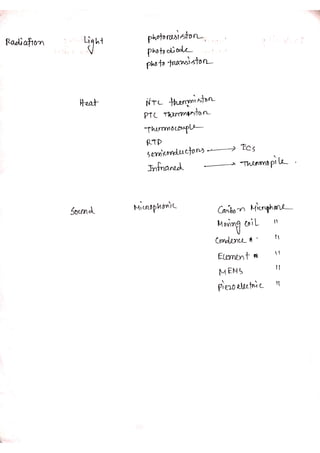 Radiation Light photoresistor
photodiode
photo transistor
Heat NTC thermistor
PTC Thermistor
Thermocouple
RTD
semiconductors → ICs
Infrared → Thermopile
Sound Microphonic Carbon Microphone
Moving coil "
Condence " "
Element " "
MEMS "
piezoelectric "